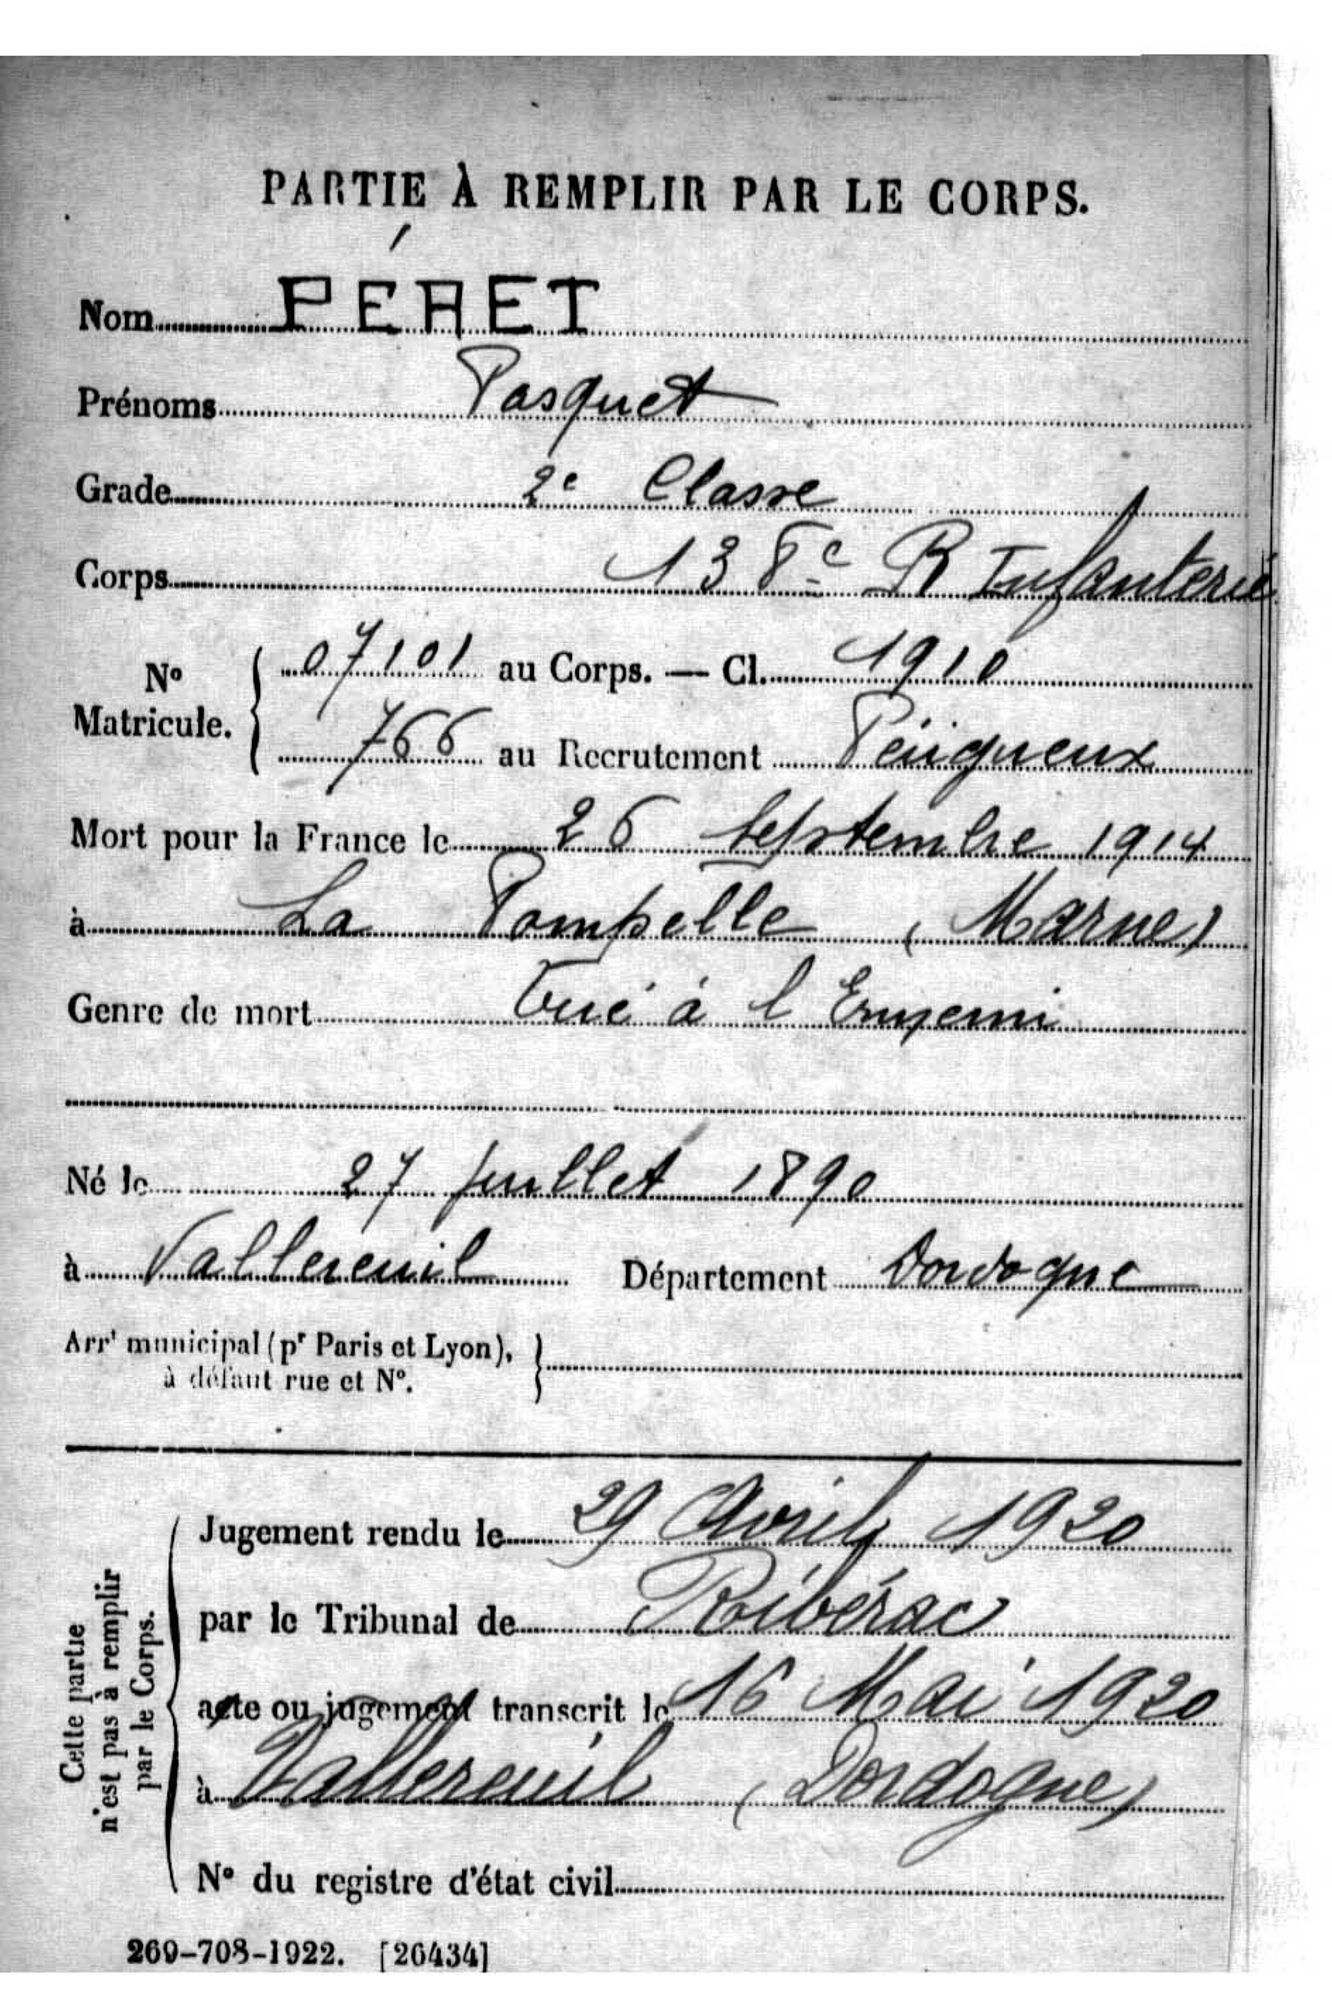 PARTIE À REMPLIR PAR LE CORPS.
Nom PÉRET
Prénoms Pasquet
Grade 2e Classe
Corps 138e R Infanterie
No Matricule. 07101 au Corps. — Cl. 1910
766 au Recrutement Périgueux
Mort pour la France le 26 Septembre 1914
à La Pompelle (Marne)
Genre de mort Tué à l'Ennemi
Né le 27 Juillet 1890
à Vallereuil Département Dordogne
Arrt municipal (pr Paris et Lyon), à défaut rue et No.
Cette partie n'est pas à remplir par le Corps.
Jugement rendu le 29 Avril 1920
par le Tribunal de Ribérac
acte ou jugement transcrit le 16 Mai 1920
à Vallereuil (Dordogne)
No du registre d'état civil
269-708-1922. [26434]